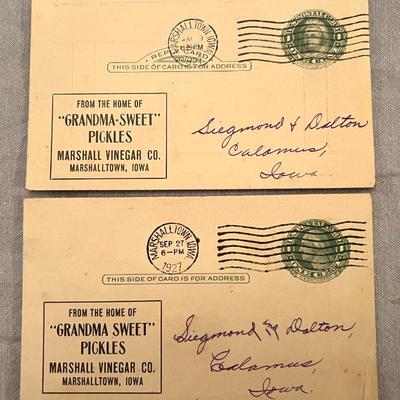 MARSHALLTOWN, IOWA
PM
REPLY CARD
THIS SIDE OF CARD IS FOR ADDRESS
FROM THE HOME OF
"GRANDMA-SWEET"
PICKLES
MARSHALL VINEGAR CO.
MARSHALLTOWN, IOWA
Siegmond & Dalton
Calamus,
Iowa.
MARSHALLTOWN, IOWA
SEP 27
6-PM
1927
THIS SIDE OF CARD IS FOR ADDRESS
FROM THE HOME OF
"GRANDMA SWEET"
PICKLES
MARSHALL VINEGAR CO.
MARSHALLTOWN, IOWA
Siegmond and Dalton,
Calamus,
Iowa.